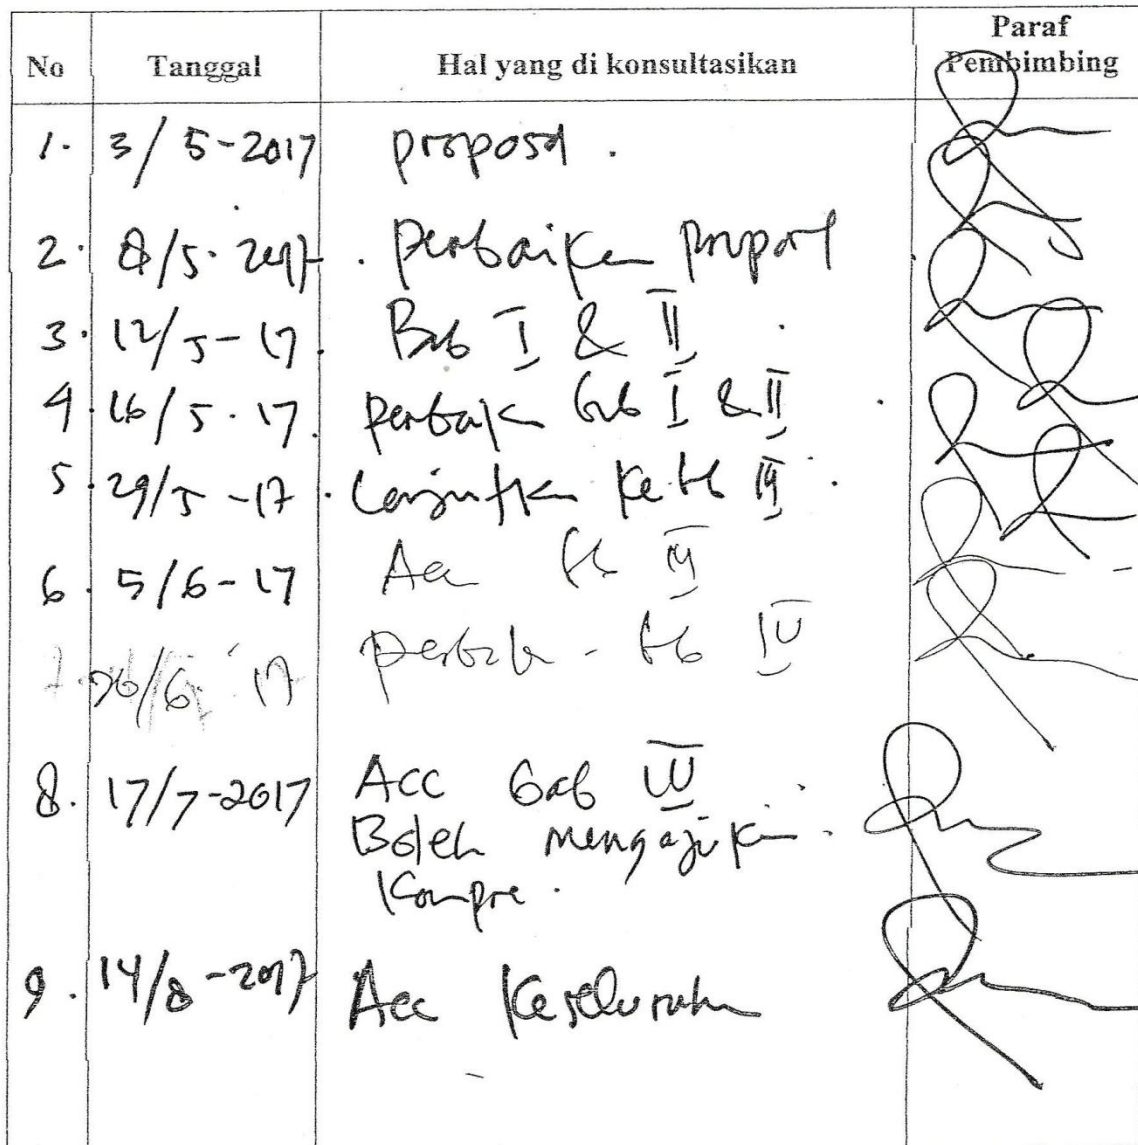 No Tanggal Hal yang di konsultasikan Paraf
Pembimbing
1. 3/5-2017 proposal.
2. 8/5-2017. perbaikan proposal
3. 12/5-17. Bab I & II.
4. 16/5-17. perbaikan bab I & II.
5. 29/5-17. Lanjutkan ke bab III.
6. 5/6-17 Acc bab III
7. /6-17 perbaikan - bab IV
8. 17/7-2017 Acc bab IV
Boleh mengajukan.
Kompre.
9. 14/8-2017 Acc Keseluruhan